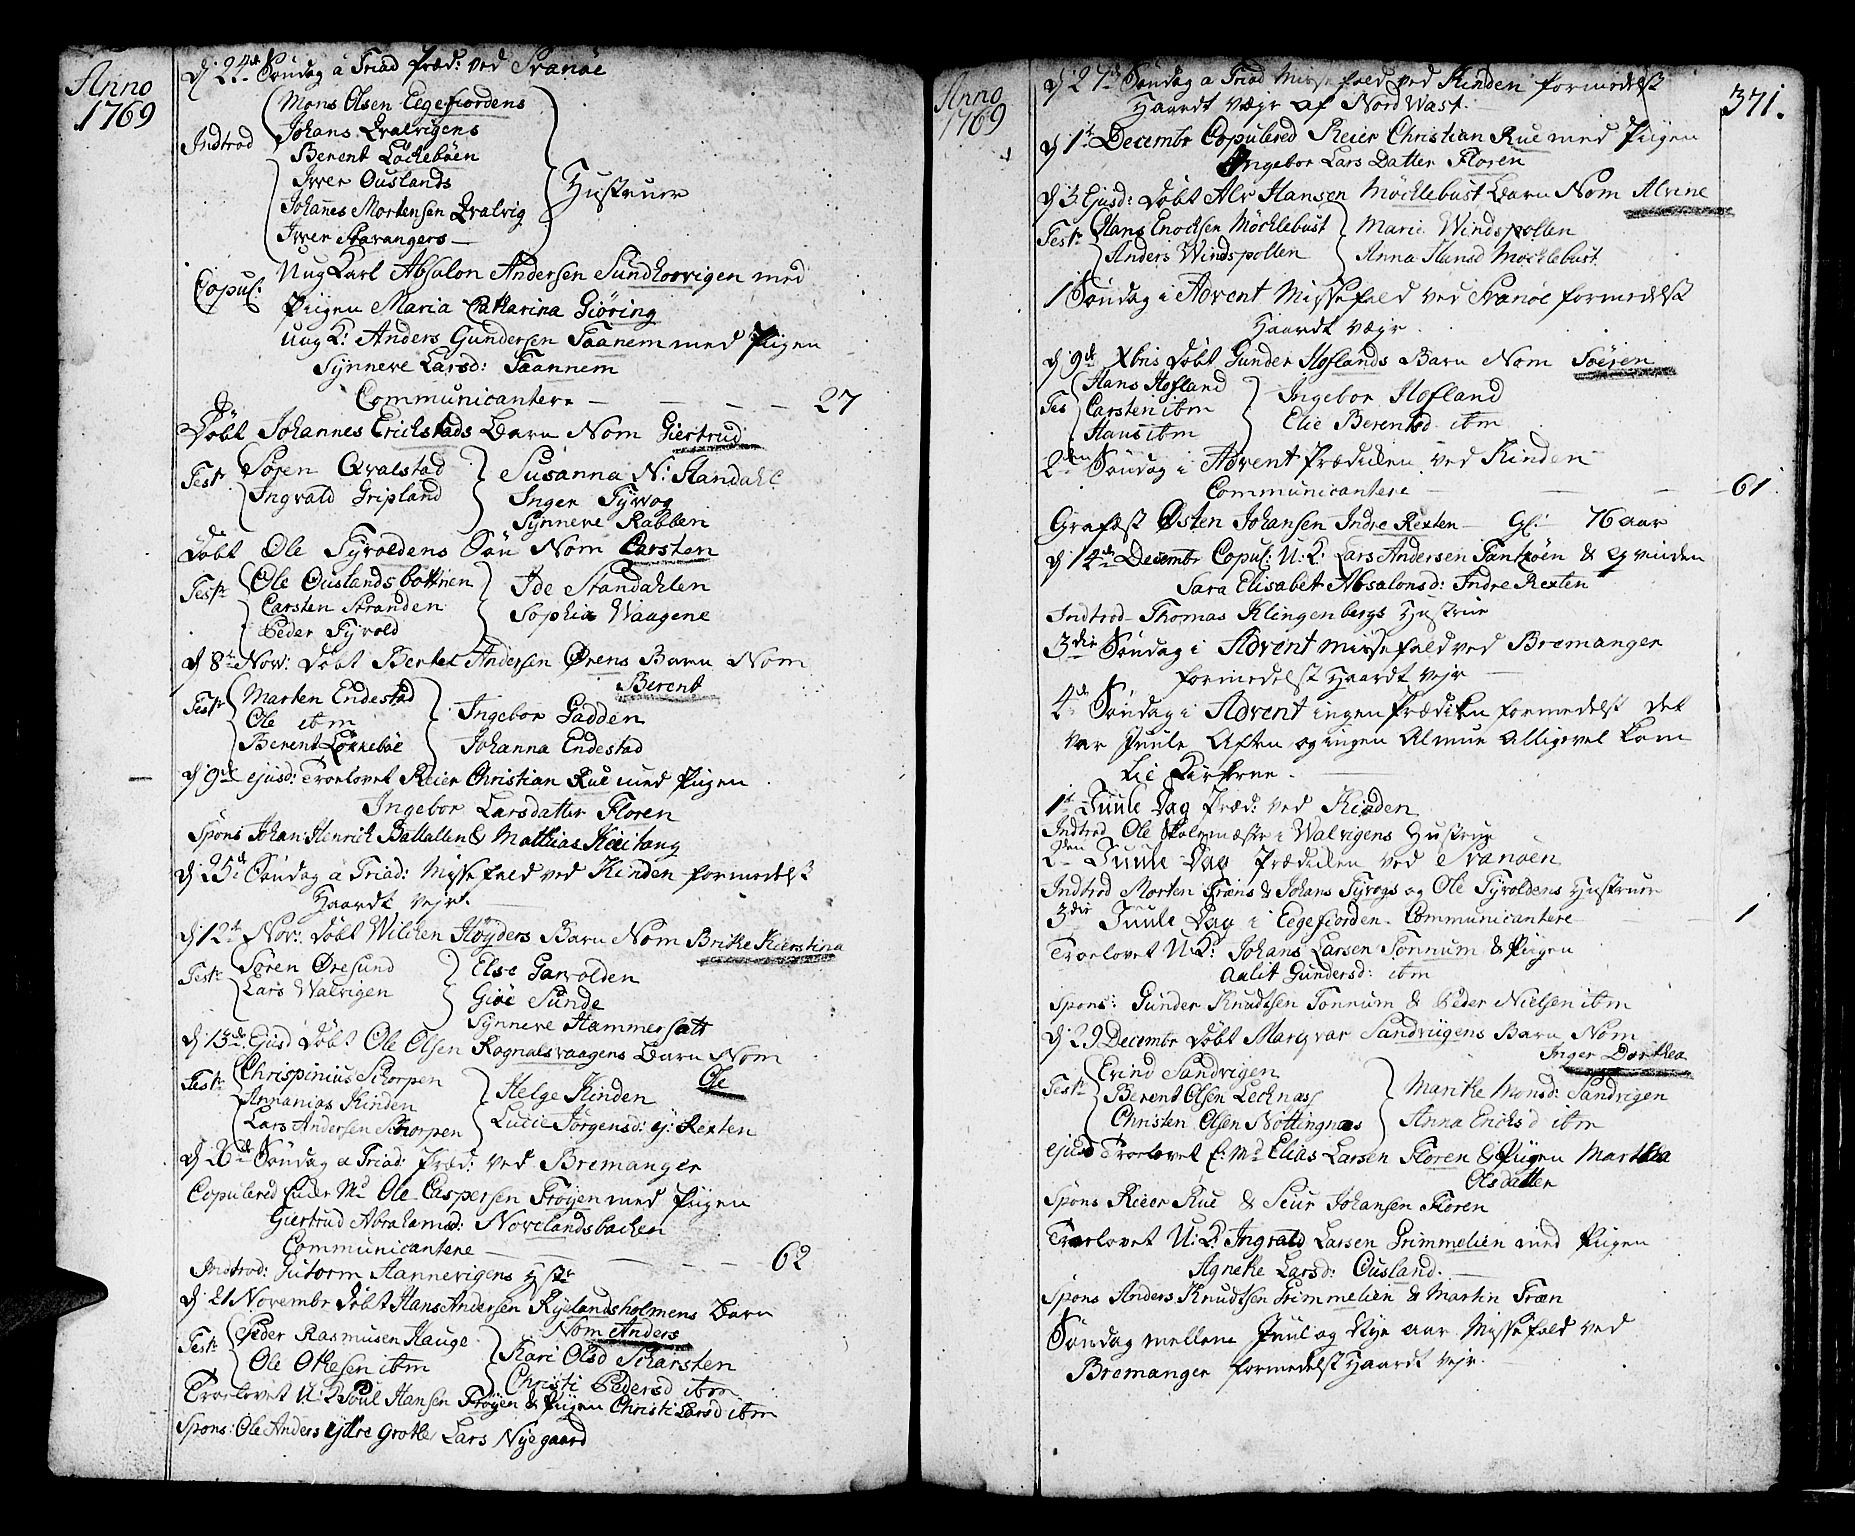 Anno
1769
D: 24de Søndag a Triad Præd: ved Svanøe
Mons Olsen Eegefiordens
Indtrod Johans Qvalvigens
Berent Löckebøen
Iwer Ouslands
Hustruer
Johannes Mortensen Qvalvig
Iwer Stavangers
Copul: Ung Karl Absalon Andersen Sundhorvigen med
Piigen Maria Catharina Giöring
Ung K: Anders Gundersen Taanem med Piigen
Synneve Larsd: Taannem
Communicantere 27
Döbt Johannes Erichstads Barn Nom Giertrud
Test: Sören Qvalstad Susanna N: Standahl
Ingvald Gripland Inger Tyvog
Synneve Rabben
Döbt Ole Tyvoldens Sön Nom Carsten
Test: Ole Ouslandsbottnen Ide Standahlen
Carsten Stranden Sophia Waagene
Peder Tyvold
D: 8de Nov: Döbt Bertel Andersen Ørens Barn Nom
Berent
Test: Marten Endestad Ingebor Gadden
Ole ibm
Berent Lönneböe Johanna Endestad
D: 9de ejusd: Troelovet Reier Christian Rue med Piigen
Ingebor Larsdatter Floren
Spons Johan Henrich Battallen & Matthias Keitang
D: 25de Söndag a Triad: Messefald ved Kinden formedelst
Haardt vejr.
D: 12te Nov: Döbt Willien Høyders Barn Nom Britte Kierstina
Test: Søren Øresund Else Garvolden
Lars Walvigen Giöe Sunde
Synneve Hammersæt
D: 13de Ejusd Döbt Ole Olsen Rognalsvaagens Barn Nom
Ole
Test: Chrispinius Schorpen Helge Kinden
Annanias Kinden
Lars Andersen Schorpen Lucie Jörgensd: y: Rexten
D: 26de Söndag a Triad: Præd: ved Bremanger
Copulered Ole Caspersen Fröyen med Piigen
Giertrud Abrahamsd: Novelandsbachen
Communicantere 62
Indtrod: Gutorm Aannevigens Hstr
D: 21 Novembr Döbt Hans Andersen Rylandsholmens Barn
Nom Anders
Test: Peder Rasmusen Hauge Kari Olsd Scharsten
Ole Othesen ibm Christi Pedersd ibm
Troelovet U: K Poul Hansen Fröyen & Piigen Christi Larsd ibm
Spons: Ole Anders ytre Grotle Lars Nyegaard
Anno
1769
371.
D: 27de Söndag a Triad Messefald ved Kinden formedelst
Haardt vejr af Nord Wast.
D: 1te Decembr Copulered Reier Christian Rue med Piigen
Ingebor Lars Datter Floren
D: 3 Ejusd: Döbt Alv Hansen Möcklebust Barn Nom Alvine
Test: Hans Enochsen Möcklebust Marie Windspollen
Anders Windspollen Anna Hansd Möcklebust
1 Söndag i Advent Messefald ved Svanøe formedelst
Haardt vejr.
D: 9de Xbris Döbt Gunder Hoflands Barn Nom Söeren
Tes Hans Hofland Ingebor Hofland
Carsten ibm Elie Berentsd. ibm
Hans ibm
2den Söndag i Advent Prædiken ved Kinden
Communicantere 61
Grafæst Østen Johansen Indre Rexten Gl: 76 aar
D: 14de Decembr Copul: U: K: Lars Andersen Tanköen & Qvinden
Sara Elisabet Absalonsd: Indre Rexten
Indtrod Thomas Klingenbergs Hustrue
3die Söndag i Advent Messefald ved Bremanger
formedelst Haardt vejr
4de Söndag i Advent ingen Prædiken formedelst det
var Juule Aften og ingen Almue alligevel kom
til Kirkerne.
1te Juule Dag Præd: ved Kinden
Indtrod Ole Skolemæster i Walvigens Hustrue
2den Juule Dag Prædiken ved Svanøen
Indtrod Morten Træns & Johans Tyvogs og Ole Tyvoldens Hustruer
3die Juule Dag i Eegefiorden. Communicantere 1
Troelovet U: K: Johans Larsen Tonnum & Piigen
Aalit Gundersd: ibm
Spons: Gunder Knudtsen Tonnum & Peder Nielsen ibm
D: 29 Decembr Döbt Marqvar Sandvigens Barn Nom
Inger Dorthea
Test: Evind Sandvigen Marithe Monsd: Sandvigen
Berent Olsen Lecknæss
Christen Olsen Nöttingnæs Anna Ericksd ibm
ejusd Troelovet E: Md Elias Larsen Floren & Piigen Martha
Olsdatter
Spons Reier Rue & Siur Johansen Floren
Troelovet U: K: Ingvald Larsen Grimmelien med Piigen
Agnethe Larsd: Ousland.
Spons Anders Knudtsen Grimmelien & Martin Træn
Söndag mellem Juul og Nye aar Messefald ved
Bremanger formedelst Haardt vejr.